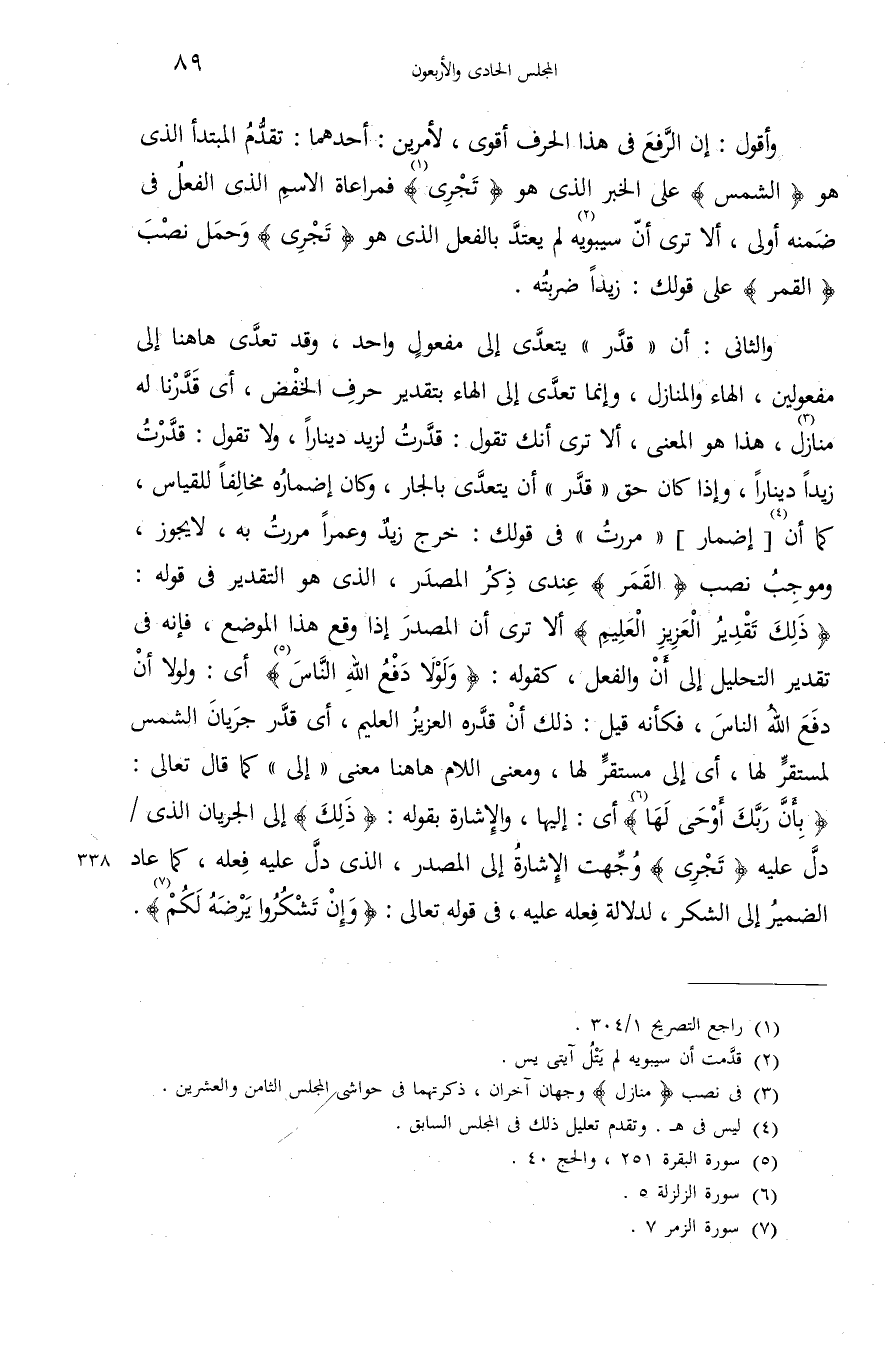 المجلس الحادى والأربعون ٨٩
وأقول : إن الرَّفعَ فى هذا الحرف أقوى ، لأمرين : أحدهما : تقدُّمُ المبتدأ الذى
هو ﴿ الشمس ﴾ على الخبر الذى هو ﴿ تَجْرِى ﴾(١) فمراعاة الاسمِ الذى الفعلُ فى
ضَمنه أولى ، ألا ترى أنّ سيبويه(٢) لم يعتدَّ بالفعل الذى هو ﴿ تَجْرِى ﴾ وَحمَل نصْبَ
﴿ القمر ﴾ على قولك : زيداً ضربتُه .
والثانى : أن « قدَّر » يتعدَّى إلى مفعولٍ واحد ، وقد تعدَّى هاهنا إلى
مفعولين ، الهاء والمنازل ، وإنما تعدَّى إلى الهاء بتقدير حرفِ الخفْض ، أى قَدَّرْنا له
منازلَ(٣) ، هذا هو المعنى ، ألا ترى أنك تقول : قدَّرتُ لزيد ديناراً ، ولا تقول : قدَّرْتُ
زيداً ديناراً ، وإذا كان حق « قدَّر » أن يتعدَّى بالجار ، وكان إضمارُه مخالِفاً للقياس ،
كما أن(٤) [ إضمار ] « مررتُ » فى قولك : خرج زيدٌ وعمراً مررتُ به ، لايجوز ،
وموجِبُ نصب ﴿ القَمَر ﴾ عِندى ذِكرُ المصدَر ، الذى هو التقدير فى قوله :
﴿ ذَلِكَ تَقْدِيرُ الْعَزِيزِ الْعَلِيمِ ﴾ ألا ترى أن المصدرَ إذا وقع هذا الموضع ، فإنه فى
تقدير التحليل إلى أَنْ والفعل ، كقوله : ﴿ وَلَوْلَا دَفْعُ اللهِ النَّاسَ ﴾(٥) أى : ولولا أنْ
دفَعَ اللهُ الناسَ ، فكأنه قيل : ذلك أنْ قدَّره العزيزُ العليم ، أى قدَّر جرَيانَ الشمس
لمستقرٍّ لها ، أى إلى مستقرٍّ لها ، ومعنى اللام هاهنا معنى « إلى » كما قال تعالى :
﴿ بِأَنَّ رَبَّكَ أَوْحَى لَهَا ﴾(٦) أى : إليها ، والإشارة بقوله : ﴿ ذَلِكَ ﴾ إلى الجريان الذى /
دلَّ عليه ﴿ تَجْرِى ﴾ وُجِّهت الإشارةُ إلى المصدر ، الذى دلَّ عليه فِعله ، كما عاد ٣٣٨
الضميرُ إلى الشكر ، لدلالة فِعله عليه ، فى قوله تعالى : ﴿ وَإِنْ تَشْكُرُوا يَرْضَهُ لَكُمْ ﴾(٧) .
(١) راجع التصريح ٣٠٤/١ .
(٢) قدَّمت أن سيبويه لم يَتْلُ آيتى يس .
(٣) فى نصب ﴿ منازل ﴾ وجهان آخران ، ذكرتهما فى حواشى المجلس الثامن والعشرين .
(٤) ليس فى هـ . وتقدم تعليل ذلك فى المجلس السابق .
(٥) سورة البقرة ٢٥١ ، والحج ٤٠ .
(٦) سورة الزلزلة ٥ .
(٧) سورة الزمر ٧ .